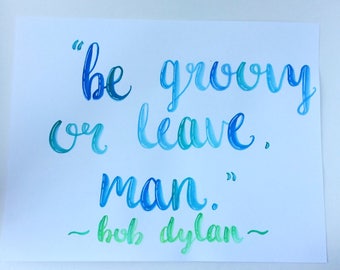 "be groovy
or leave,
man."
~ bob dylan ~